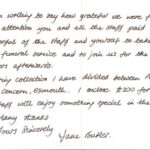 writing to say how grateful we were f
attention you and all the staff paid
of the staff and yourself to take
funeral service and to join us for the
afterwards.
collection I have divided between A
Concern, Exmouth. I enclose £200 for
Staff will enjoy something special in the
Many thanks
Yours Sincerely
Jane Butler.